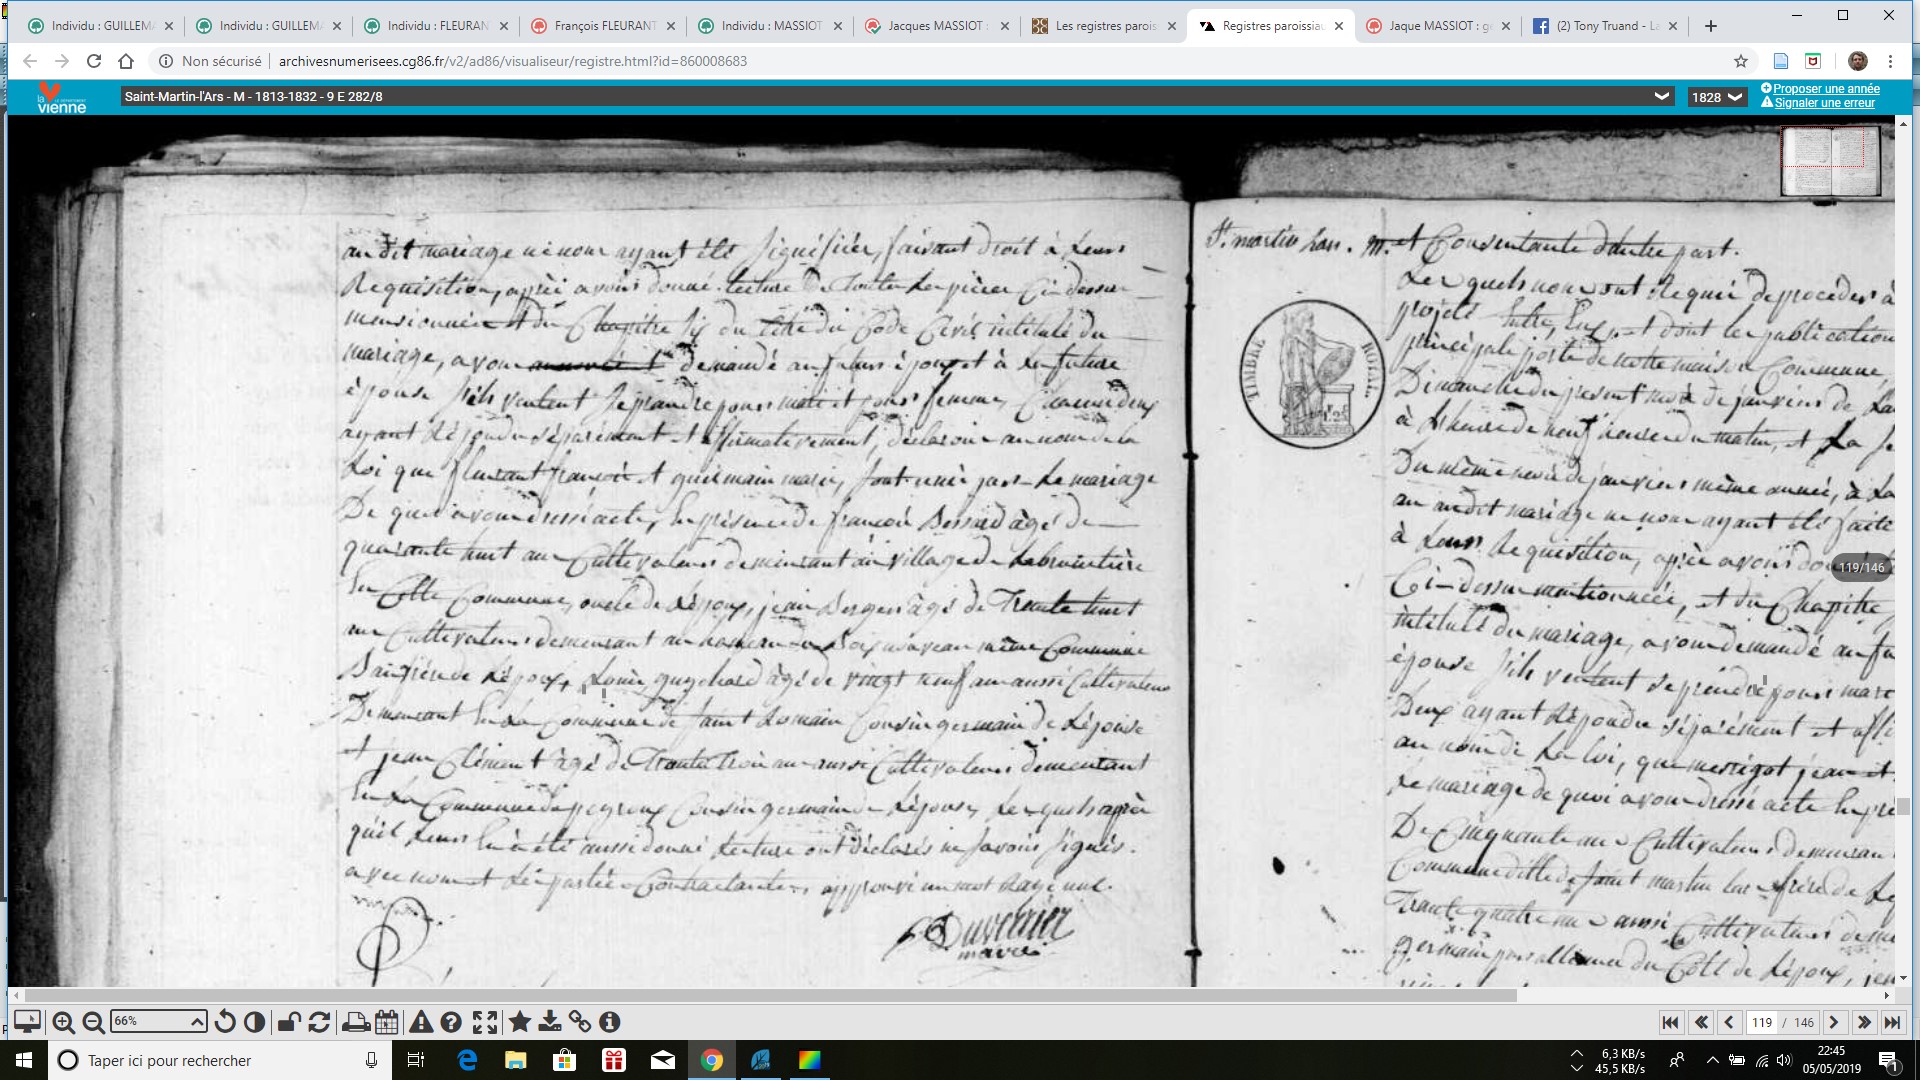 Individu : GUILLEMA
Individu : GUILLEMA
Individu : FLEURAN
François FLEURANT
Individu : MASSIOT
Jacques MASSIOT :
Les registres parois
Registres paroissiau
Jaque MASSIOT : ge
(2) Tony Truand - La
Non sécurisé | archivesnumerisees.cg86.fr/v2/ad86/visualiseur/registre.html?id=860008683
la vienne
Saint-Martin-l'Ars - M - 1813-1832 - 9 E 282/8
1828
Proposer une année
Signaler une erreur
au dit mariage ne nous ayant été signifiée, faisant droit à leurs
Requisition, après avoir donné lecture de toutes les pièces ci-dessus
mensionnées et du Chapitre six du titre du Code Civil intitulé du
mariage, avons demandé au futur époux et à la future
épouse s'ils veulent se prendre pour mari et pour femme, chacun d'eux
ayant répondu séparément et affirmativement, déclarons au nom de la
Loi que fleurant françois et guilmain marie, sont unis par le mariage
De quoi avons dressé acte, En présence de françois Bernard âgé de
quarante huit ans Cultivateur demeurant au village de Labruientière
En Cette Commune, oncle de L'époux, jean Desgers âgé de Trente huit
ans Cultivateur demeurant au hameau du Bois nouveau même Commune
Beaufrère de L'époux, Louis guychard âgé de vingt neuf ans aussi Cultivateur
Demeurant En La Commune de saint Romain Cousin germain de L'épouse
et jean Clément âgé de Trente trois ans aussi Cultivateur demeurant
En La Commune de peyroux Cousin germain de L'épouse, Lesquels après
qu'il Leurs En a été aussi donné Lecture ont déclarés ne savoir signer.
avec nous et les parties Contractantes, approuvé un mot rayé nul.
Duverrier
maire
St. martin Lars. M. et Consentante d'autre part.
TIMBRE ROYAL
Les quels nous ont Requis de procéder à
projeté Entre Eux, et dont les publication
principale porte de notre maison Commune,
Dimanche du présent mois de janvier de La
à L'heure de neuf heures du matin, et La se
Du même mois de janvier même année, à La
au audit mariage ne nous ayant été faite
à Leurs Requisition, après avoir don
Ci-dessus mentionnées, et du Chapitre
intitulé du mariage, avons demandé au fu
épouse s'ils veulent se prendre pour mari
Deux ayant Répondu séparément et affi
au nom de La Loi, que merigot jean et
Le mariage de quoi avons dressé acte En pré
De Cinquante ans Cultivateur demeuran
Commune dite de Saint martin Lars frère de L'é
Trente quatre ans aussi Cultivateur deme
germain par alliance du Coté de L'époux, jea
119/146
66%
119 / 146
Taper ici pour rechercher
6,3 KB/s
45,5 KB/s
22:45
05/05/2019
1